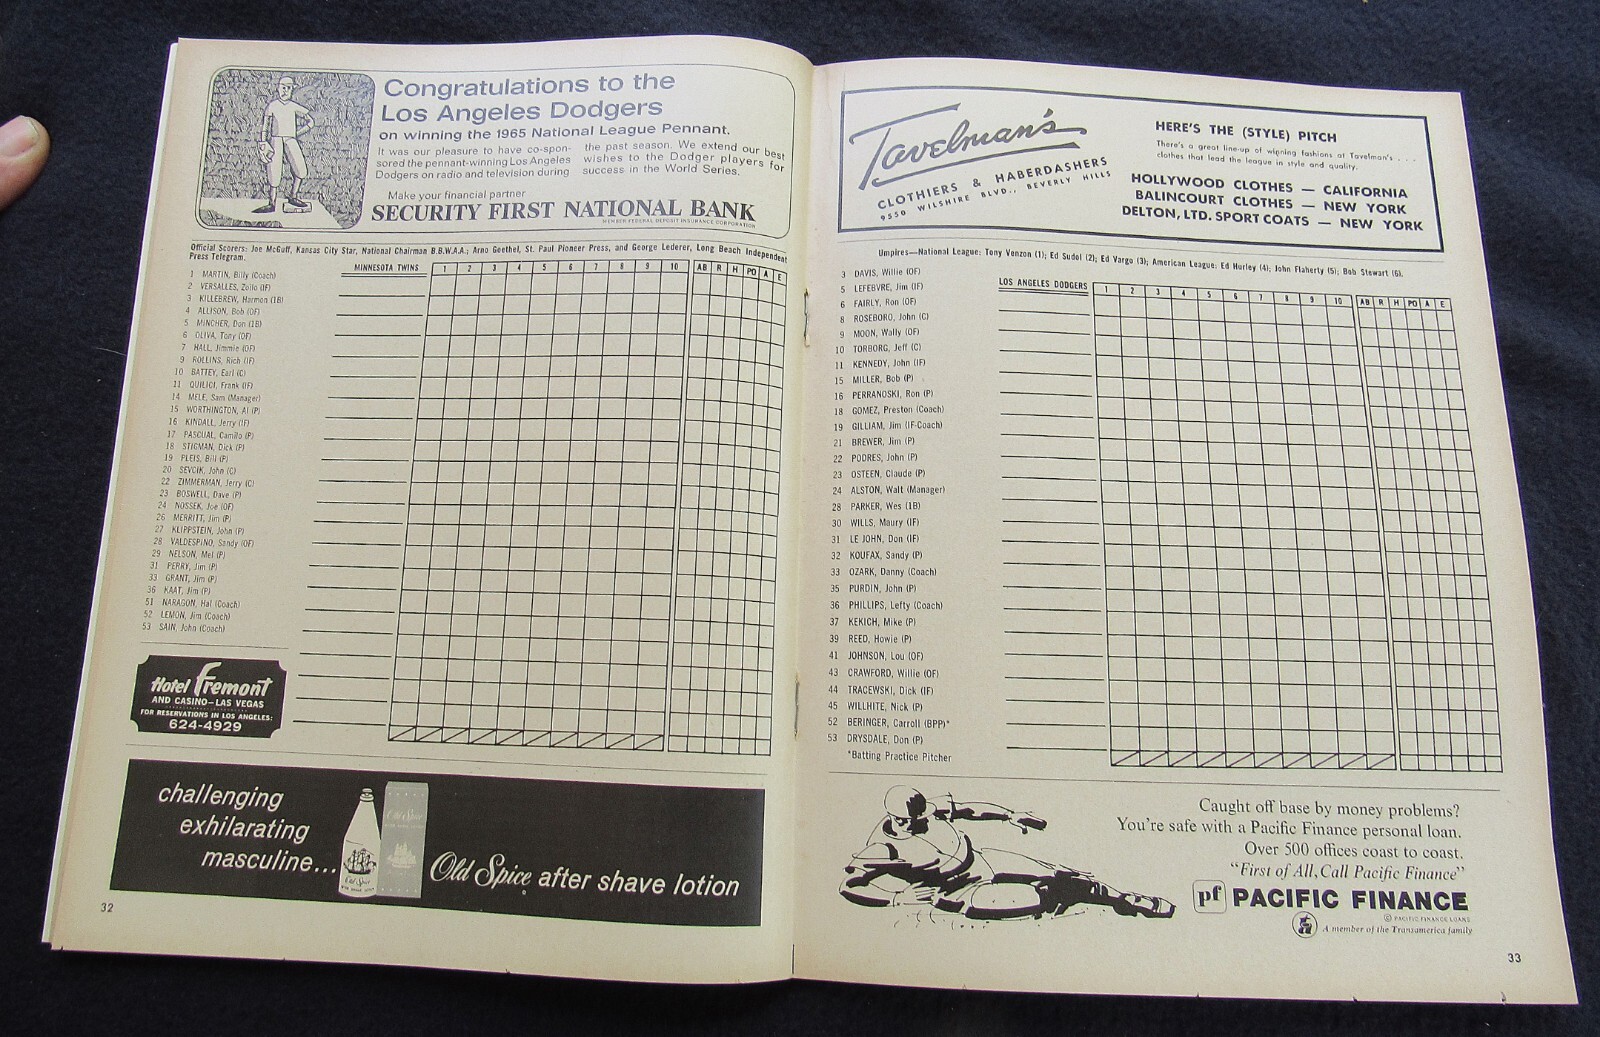 Congratulations to the
Los Angeles Dodgers
on winning the 1965 National League Pennant.
It was our pleasure to have co-spon-
sored the pennant-winning Los Angeles
Dodgers on radio and television during
the past season. We extend our best
wishes to the Dodger players for
success in the World Series.
Make your financial partner
SECURITY FIRST NATIONAL BANK
MEMBER FEDERAL DEPOSIT INSURANCE CORPORATION
Official Scorers: Joe McGuff, Kansas City Star, National Chairman B.B.W.A.A.; Arno Goethel, St. Paul Pioneer Press, and George Lederer, Long Beach Independent
Press Telegram.
MINNESOTA TWINS 1 2 3 4 5 6 7 8 9 10 AB R H PO A E
1 MARTIN, Billy (Coach)
2 VERSALLES, Zoilo (IF)
3 KILLEBREW, Harmon (1B)
4 ALLISON, Bob (OF)
5 MINCHER, Don (1B)
6 OLIVA, Tony (OF)
7 HALL, Jimmie (OF)
9 ROLLINS, Rich (IF)
10 BATTEY, Earl (C)
11 QUILICI, Frank (IF)
14 MELE, Sam (Manager)
15 WORTHINGTON, Al (P)
16 KINDALL, Jerry (IF)
17 PASCUAL, Camilo (P)
18 STIGMAN, Dick (P)
19 PLEIS, Bill (P)
20 SEVCIK, John (C)
22 ZIMMERMAN, Jerry (C)
23 BOSWELL, Dave (P)
24 NOSSEK, Joe (OF)
26 MERRITT, Jim (P)
27 KLIPPSTEIN, John (P)
28 VALDESPINO, Sandy (OF)
29 NELSON, Mel (P)
31 PERRY, Jim (P)
33 GRANT, Jim (P)
36 KAAT, Jim (P)
51 NARAGON, Hal (Coach)
52 LEMON, Jim (Coach)
53 SAIN, John (Coach)
Hotel Fremont
AND CASINO—LAS VEGAS
FOR RESERVATIONS IN LOS ANGELES:
624-4929
challenging
exhilarating
masculine...
Old Spice after shave lotion
32
Tavelman's
CLOTHIERS & HABERDASHERS
9550 WILSHIRE BLVD., BEVERLY HILLS
HERE'S THE (STYLE) PITCH
There's a great line-up of winning fashions at Tavelman's . . .
clothes that lead the league in style and quality.
HOLLYWOOD CLOTHES — CALIFORNIA
BALINCOURT CLOTHES — NEW YORK
DELTON, LTD. SPORT COATS — NEW YORK
Umpires—National League: Tony Venzon (1); Ed Sudol (2); Ed Vargo (3); American League: Ed Hurley (4); John Flaherty (5); Bob Stewart (6).
LOS ANGELES DODGERS 1 2 3 4 5 6 7 8 9 10 AB R H PO A E
3 DAVIS, Willie (OF)
5 LEFEBVRE, Jim (IF)
6 FAIRLY, Ron (OF)
8 ROSEBORO, John (C)
9 MOON, Wally (OF)
10 TORBORG, Jeff (C)
11 KENNEDY, John (IF)
15 MILLER, Bob (P)
16 PERRANOSKI, Ron (P)
18 GOMEZ, Preston (Coach)
19 GILLIAM, Jim (IF-Coach)
21 BREWER, Jim (P)
22 PODRES, John (P)
23 OSTEEN, Claude (P)
24 ALSTON, Walt (Manager)
28 PARKER, Wes (1B)
30 WILLS, Maury (IF)
31 LE JOHN, Don (IF)
32 KOUFAX, Sandy (P)
33 OZARK, Danny (Coach)
35 PURDIN, John (P)
36 PHILLIPS, Lefty (Coach)
37 KEKICH, Mike (P)
39 REED, Howie (P)
41 JOHNSON, Lou (OF)
43 CRAWFORD, Willie (OF)
44 TRACEWSKI, Dick (IF)
45 WILLHITE, Nick (P)
52 BERINGER, Carroll (BPP)*
53 DRYSDALE, Don (P)
*Batting Practice Pitcher
Caught off base by money problems?
You're safe with a Pacific Finance personal loan.
Over 500 offices coast to coast.
"First of All, Call Pacific Finance"
pf PACIFIC FINANCE
© PACIFIC FINANCE LOANS
A member of the Transamerica family
33